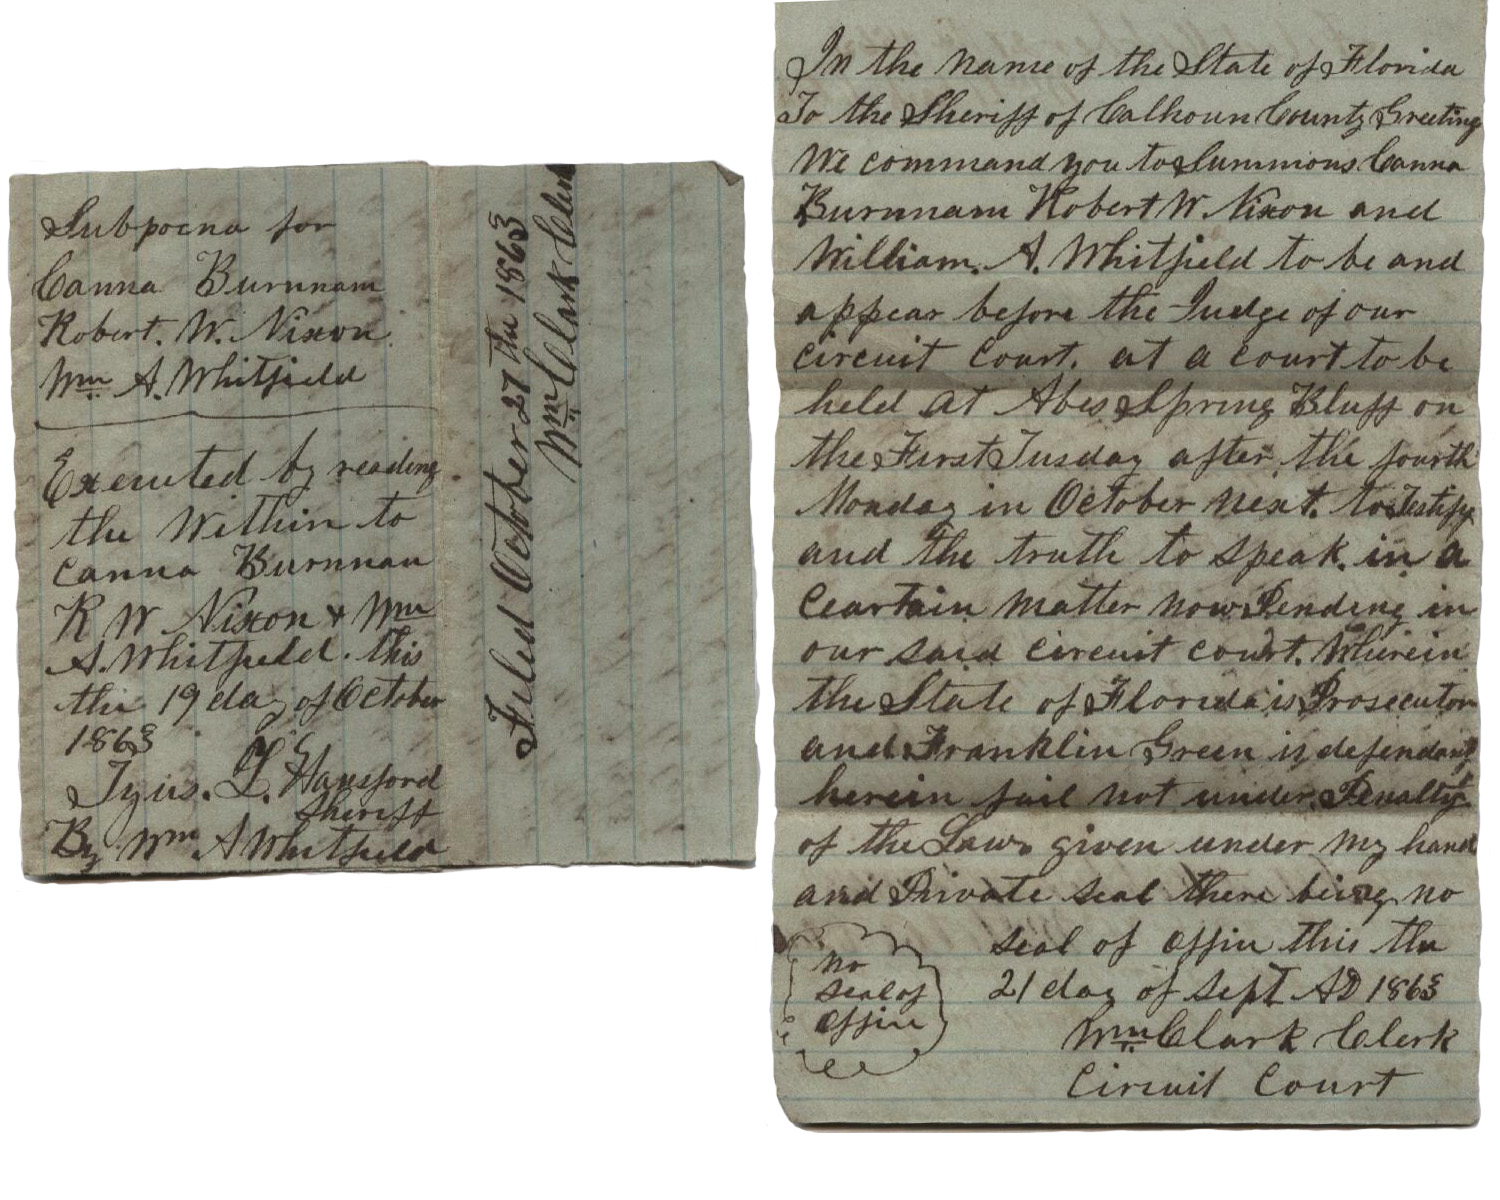 Subpoena for
Canna Burnnam
Robert. W. Nixon.
Wm A. Whitfield
Executed by reading
the Within to
Canna Burnnan
R W Nixon & Wm
A. Whitfield. this
the 19 day of October
1863
L. G. Hansford
Sheriff
By Wm A Whitfield
Filed October 27 the 1863
Wm Clark Clerk
In the name of the State of Florida
To the Sheriff of Calhoun County Greeting
We command you to Summons Canna
Burnnam Robert W. Nixon and
William. A. Whitfield to be and
appear before the Judge of our
circuit court. at a court to be
held at Abes Spring Bluff on
the First Tusday after the fourth
Monday in October next. to Testify
and the truth to speak. in a
Ceartain matter now Pending in
our said circuit court. Wherein
the State of Florida is Prosecutor
and Franklin Green is defendant
herein fail not under Penalty
of the Law. given under my hand
and Private seal there being no
seal of offin this the
21 day of Sept AD 1863
Wm Clark Clerk
Circuit Court
no
seal of
offin